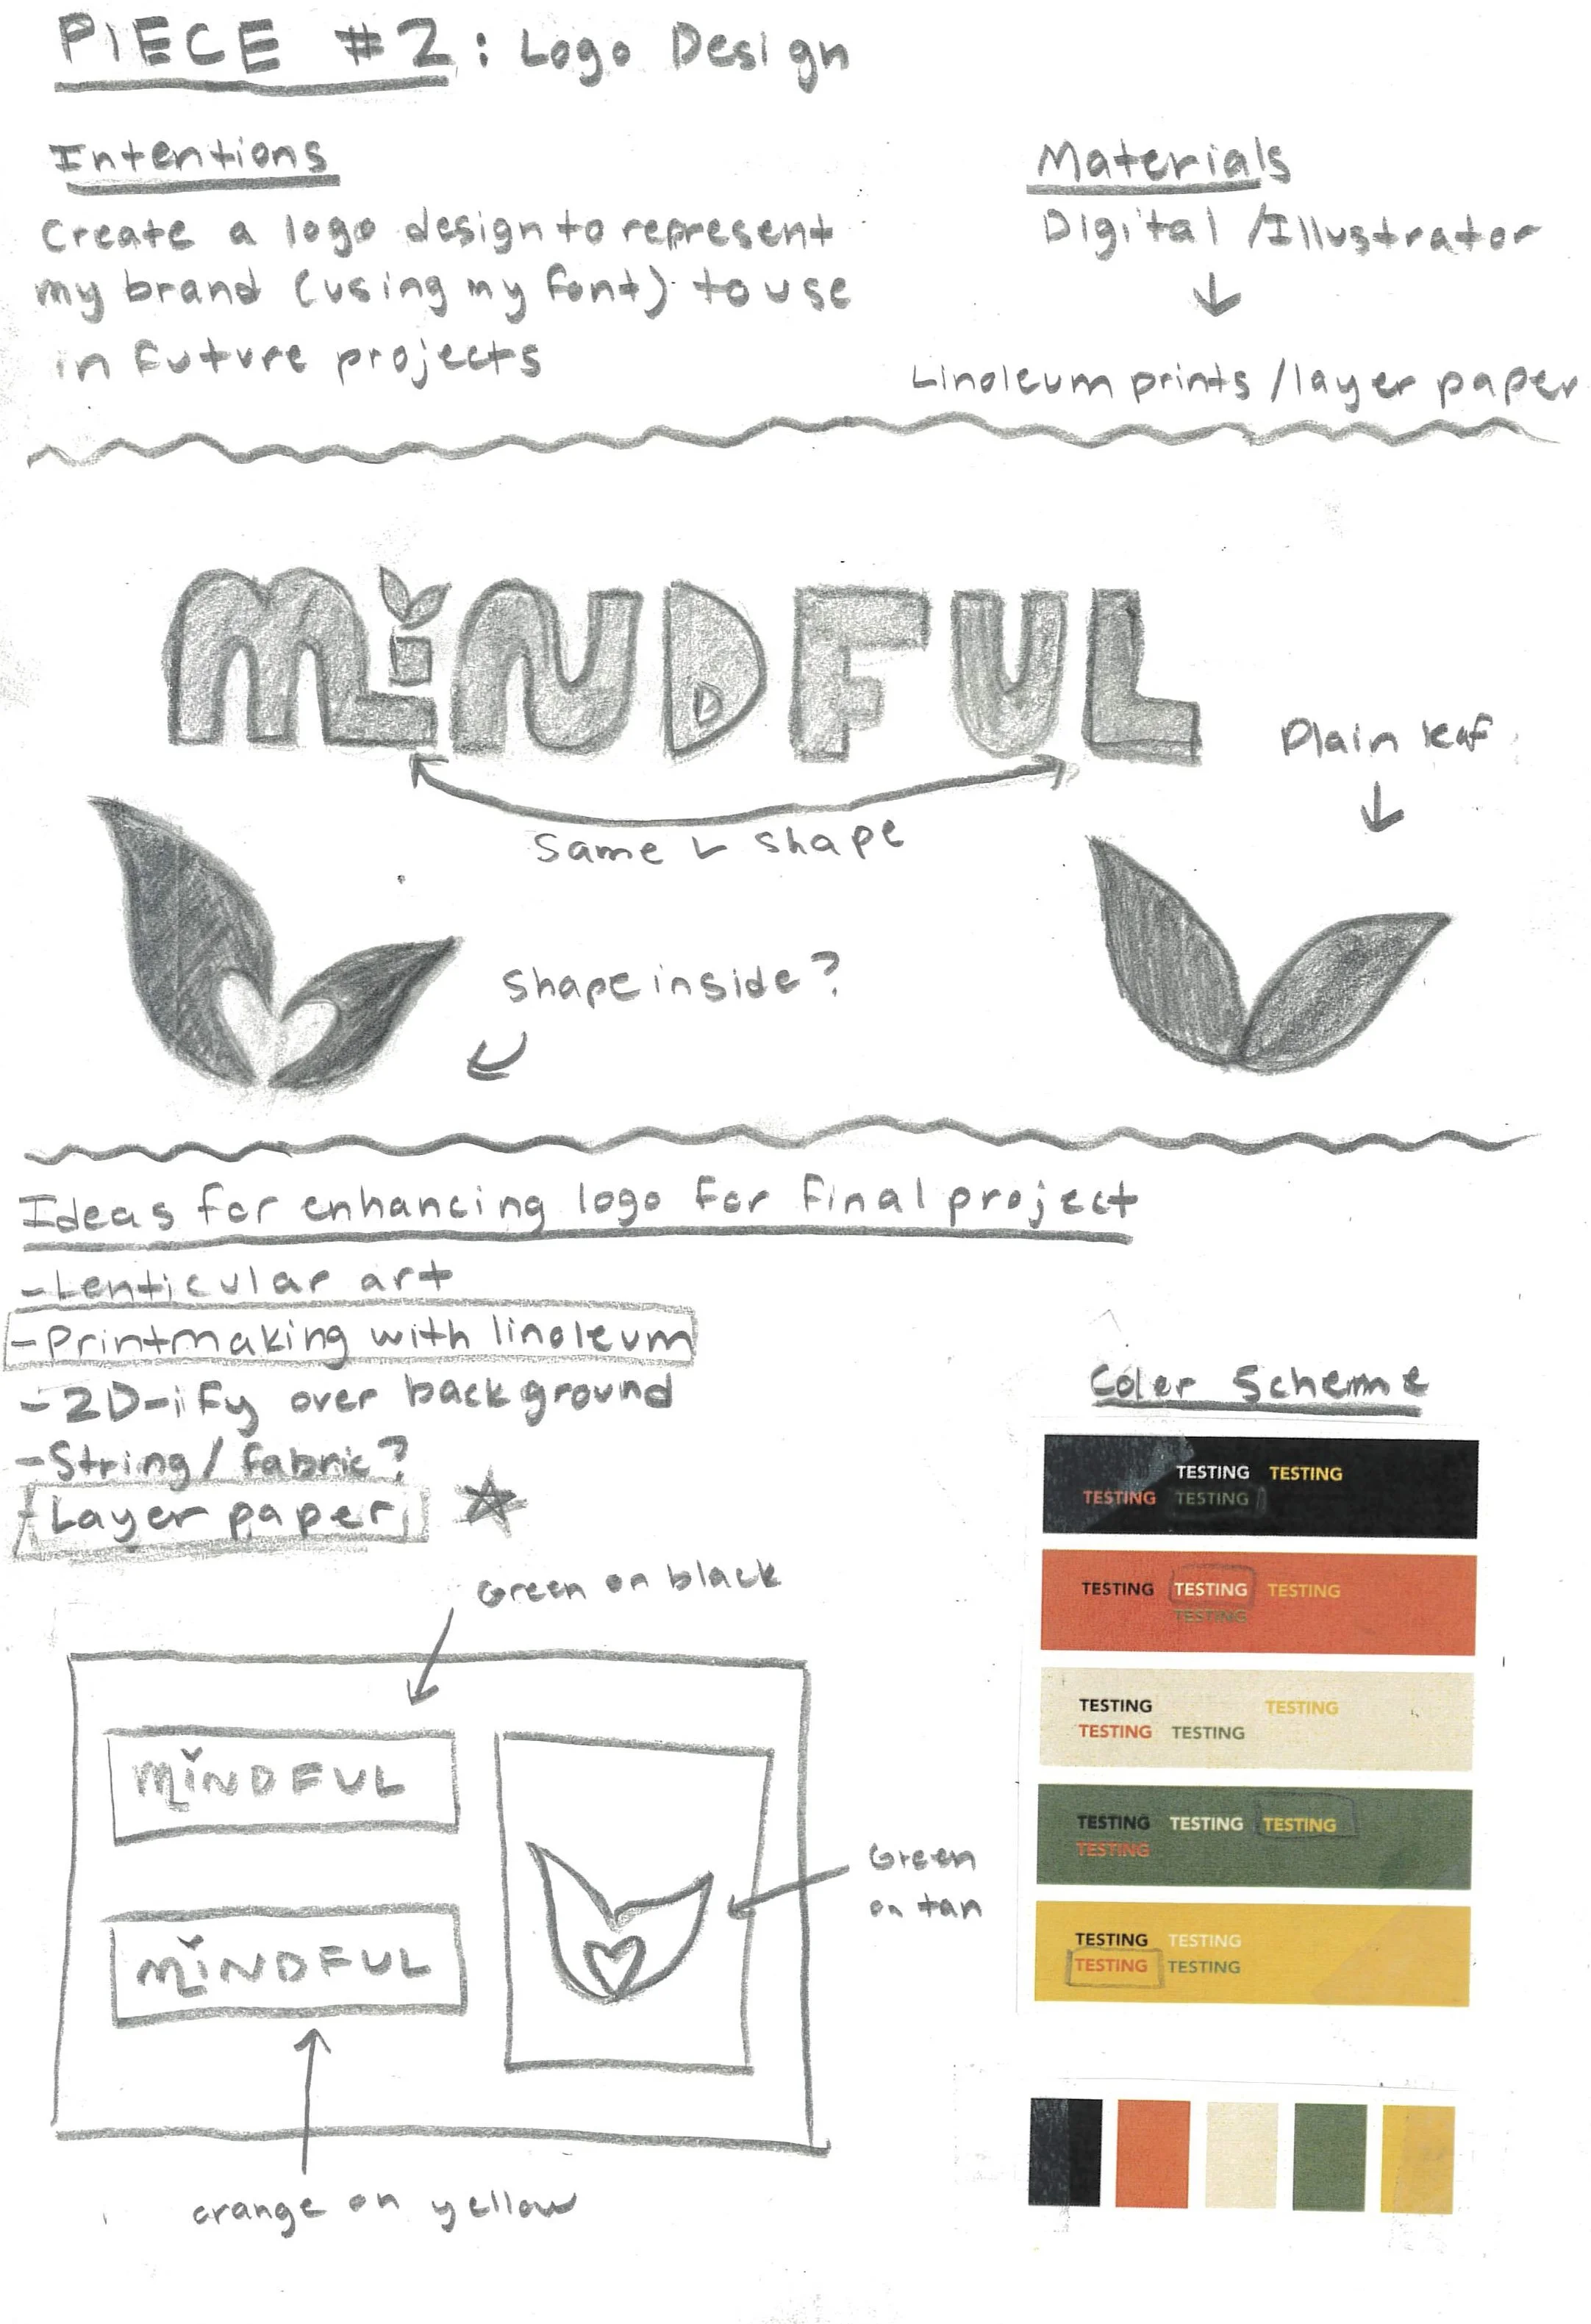 PIECE #2: Logo Design
Intentions
Create a logo design to represent
my brand (using my font) to use
in future projects
Materials
Digital /Illustrator
Linoleum prints /layer paper
MiNDFUL
Same L shape
Plain leaf
Shape inside?
Ideas for enhancing logo for final project
-Lenticular art
-Printmaking with linoleum
-2D-ify over background
-String/fabric?
-Layer paper
Green on black
MiNDFUL
MiNDFUL
Green
on tan
orange on yellow
Color Scheme
TESTING TESTING
TESTING TESTING
TESTING TESTING TESTING
TESTING
TESTING TESTING
TESTING TESTING
TESTING TESTING TESTING
TESTING
TESTING TESTING
TESTING TESTING